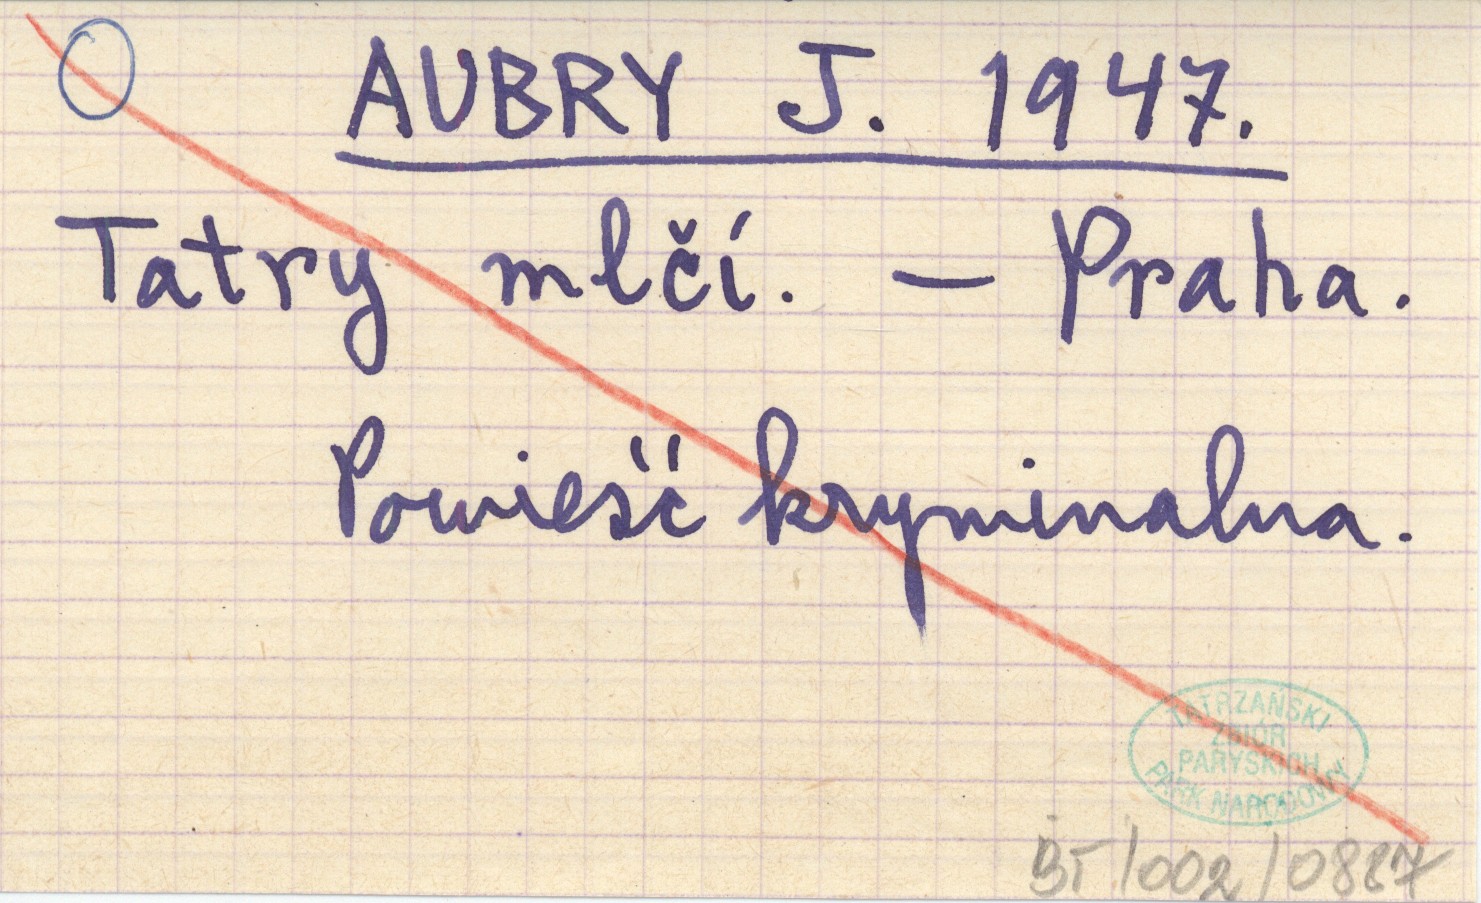 AUBRY J. 1947.
Tatry mlčí. — Praha.
Powieść kryminalna.
TATRZAŃSKI
ZBIÓR
PARYSKICH
PARK NARODOWY
BT/002/0887